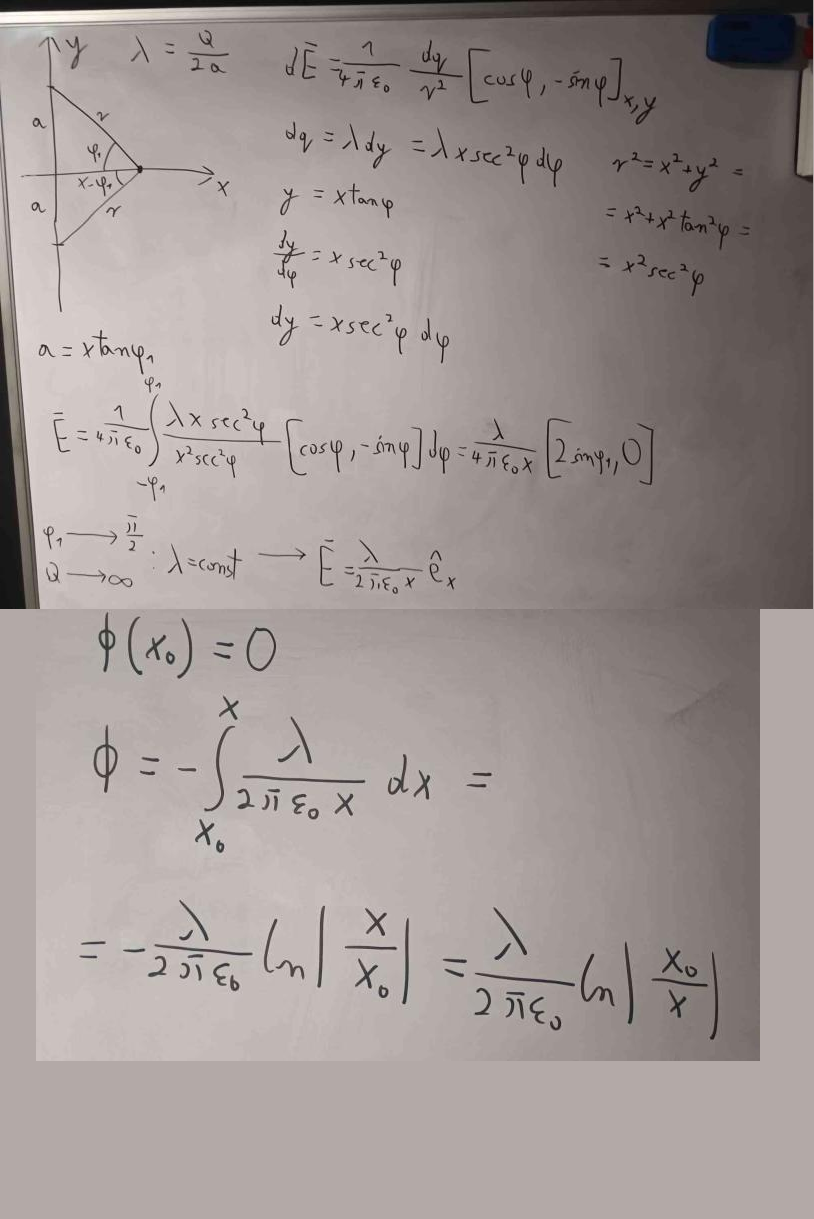 y
λ = Q/2a
dĒ = 1/4πε₀ dq/r² [cosφ, -sinφ]x,y
a
r
φ₁
x -φ₁
x
a
r
dq = λdy = λx sec²φ dφ
r² = x² + y² =
y = x tanφ
= x² + x² tan²φ =
dy/dφ = x sec²φ
= x² sec²φ
dy = x sec²φ dφ
a = x tanφ₁
Ē = 1/4πε₀ ∫_{-φ₁}^{φ₁} λx sec²φ/x² sec²φ [cosφ, -sinφ] dφ = λ/4πε₀x [2 sinφ₁, 0]
φ₁ → π/2
Q → ∞ : λ = const → Ē = λ/2πε₀x ê_x
ϕ(x₀) = 0
ϕ = - ∫_{x₀}^{x} λ/2πε₀x dx =
= - λ/2πε₀ ln|x/x₀| = λ/2πε₀ ln|x₀/x|